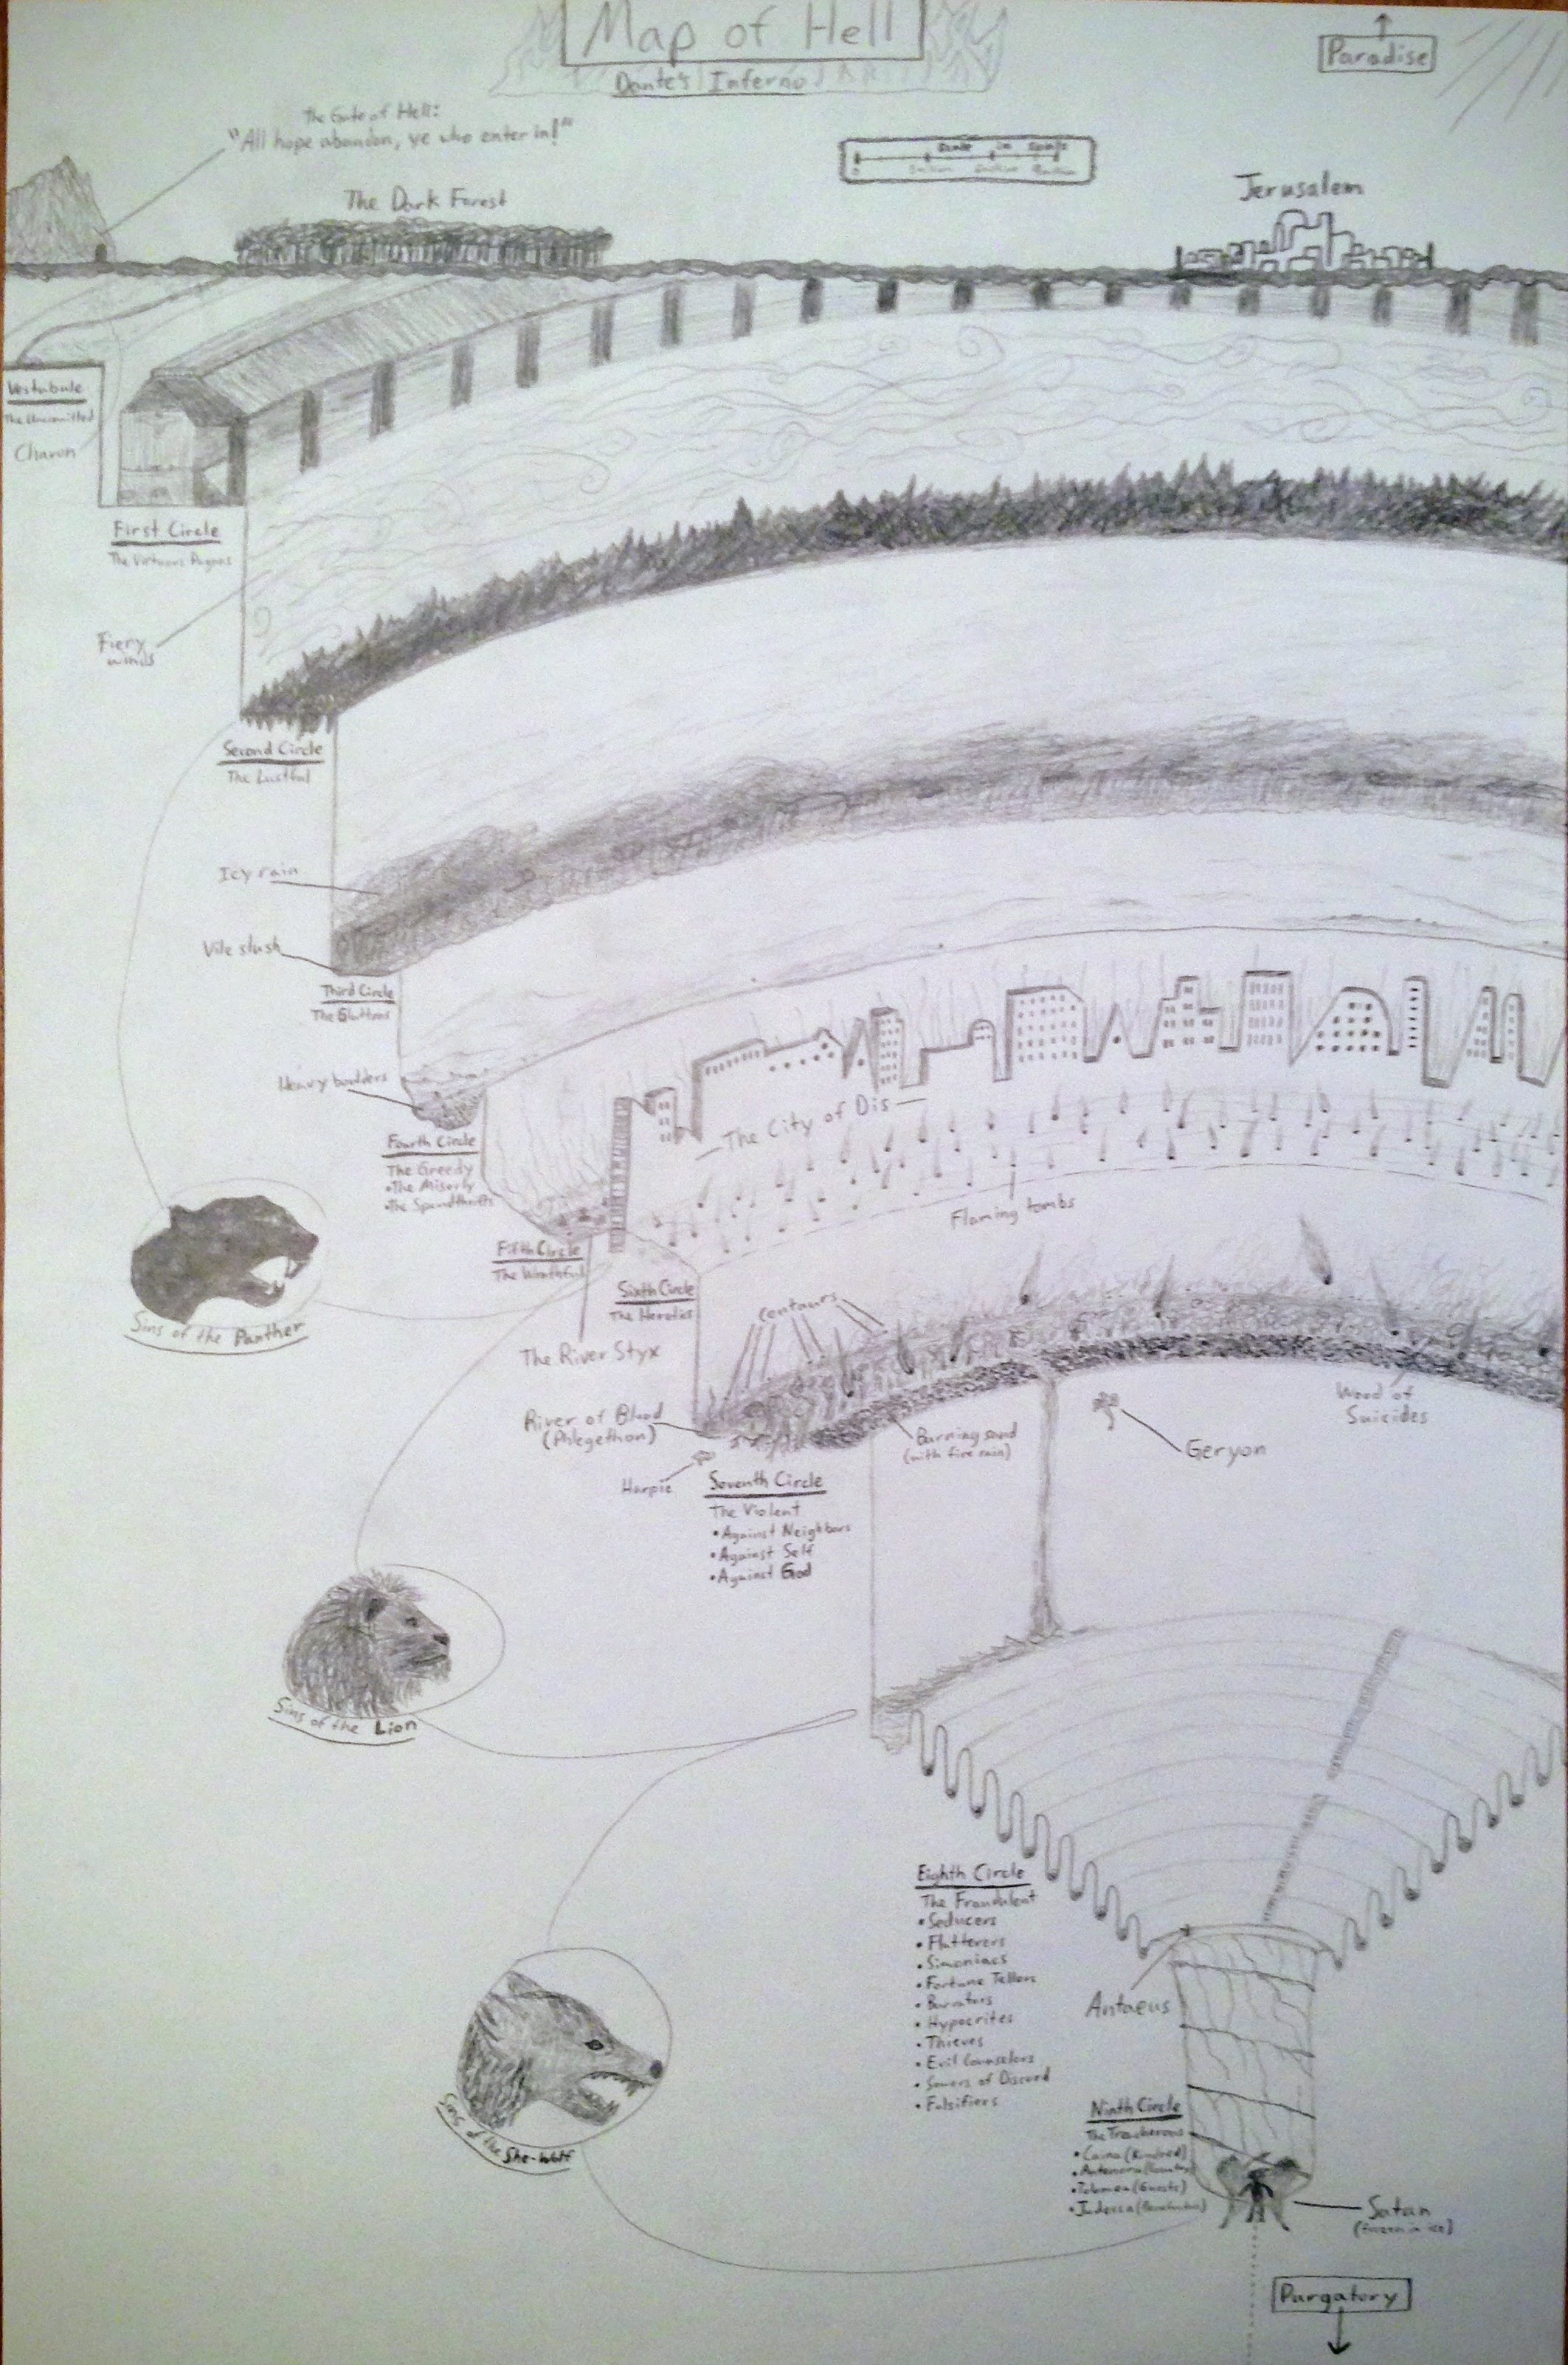 Map of Hell
Dante's Inferno
Paradise
The Gate of Hell:
"All hope abandon, ye who enter in!"
The Dark Forest
Scale in
0
Jerusalem
Vestabule
The Uncommitted
Charon
First Circle
The Virtuous Pagans
Fiery
winds
Second Circle
The Lustful
Icy rain
Vile slush
Third Circle
The Gluttons
Heavy boulders
Fourth Circle
The Greedy
•The Miserly
•The Spendthrifts
The City of Dis
Flaming tombs
Fifth Circle
The Wrathful
Sixth Circle
The Heretics
The River Styx
Sins of the Panther
Centaurs
River of Blood
(Phlegethon)
Harpie
Burning sand
(with fire rain)
Wood of
Suicides
Geryon
Seventh Circle
The Violent
•Against Neighbors
•Against Self
•Against God
Sins of the Lion
Eighth Circle
The Fraudulent
•Seducers
•Flatterers
•Simoniacs
•Fortune Tellers
•Barrators
•Hypocrites
•Thieves
•Evil Counselors
•Sowers of Discord
•Falsifiers
Antaeus
Sins of the She-Wolf
Ninth Circle
The Treacherous
•Caina (Kindred)
•Antenora
(Guests)
•Judecca
Satan
(frozen in ice)
Purgatory